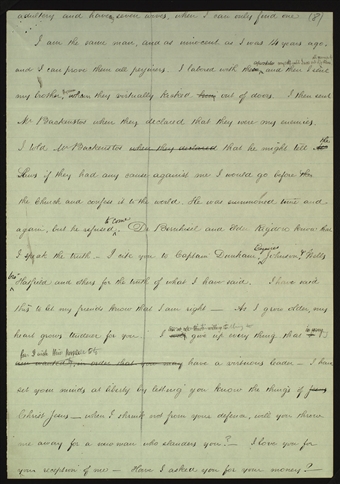 adultery and have seven wives, when I can only find one (8)
I am the same man, and as innocent as I was 14 years ago,
and I can prove them all perjurers. I labored with them, and then I sent
my brother, whom they virtually kicked out of doors. I then sent
Mr Backenstos when they declared that they were my enemies.
I told Mr Backenstos when they declared that he might tell the
Laws if they had any cause against me I would go before the
the Church and confess it to the world. He was summoned time and
to come
again, but he refused. Dr Bernhisel and Elder Rigdon know that
I speak the truth. I cite you to Captain Dunham, Johnson & Wells
Hatfield and others for the truth of what I have said. I have said
this to let my friends know that I am right — As I grow older, my
heart grows tenderer for you. I give up every thing that is
have a virtuous leader — I have
set your minds at liberty by letting you know the things of
Christ Jesus — when I shrink not from your defence, will you throw
me away for a new man who slanders you? — I love you for
your reception of me — Have I asked you for your money? —